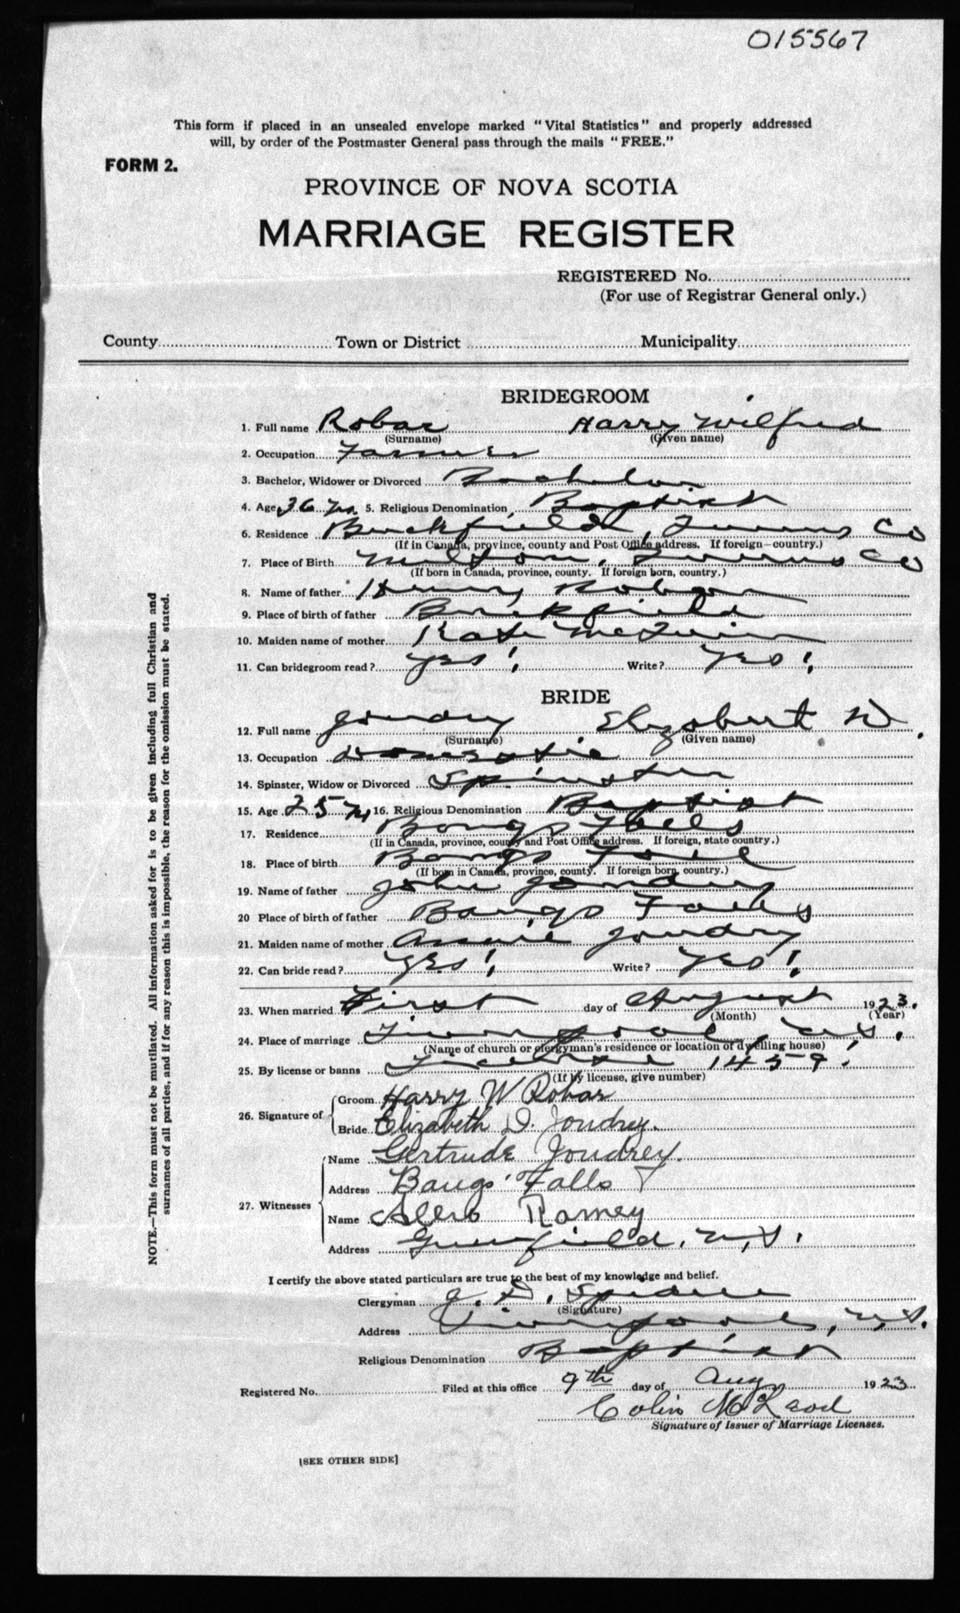 015567
This form if placed in an unsealed envelope marked "Vital Statistics" and properly addressed
will, by order of the Postmaster General pass through the mails "FREE."
FORM 2.
PROVINCE OF NOVA SCOTIA
MARRIAGE REGISTER
REGISTERED No.
(For use of Registrar General only.)
County Town or District Municipality
BRIDEGROOM
1. Full name Robar Harry Wilfred
(Surname) (Given name)
2. Occupation Farmer
3. Bachelor, Widower or Divorced Bachelor
4. Age 36 yrs. 5. Religious Denomination Baptist
6. Residence Buckfield, Queens Co
(If in Canada, province, county and Post Office address. If foreign—country.)
7. Place of Birth Milton, Queens Co
(If born in Canada, province, county. If foreign born, country.)
8. Name of father Henry Robar
9. Place of birth of father Buckfield
10. Maiden name of mother Kate
11. Can bridegroom read? yes! Write? Yes!
BRIDE
12. Full name Joudrey Elizabeth D.
(Surname) (Given name)
13. Occupation Domestic
14. Spinster, Widow or Divorced Spinster
15. Age 25 yr 16. Religious Denomination Baptist
17. Residence Bangs Falls
(If in Canada, province, county and Post Office address. If foreign, state country.)
18. Place of birth Bangs Fall
(If born in Canada, province, county. If foreign born, country.)
19. Name of father John Joudrey
20 Place of birth of father Bangs Falls
21. Maiden name of mother Annie Joudry
22. Can bride read? Yes! Write? Yes!
23. When married First day of August 1923.
(Month) (Year)
24. Place of marriage Liverpool, N.S.
(Name of church or clergyman's residence or location of dwelling house)
25. By license or banns License 1459!
(If by license, give number)
26. Signature of Groom Harry W Robar
Bride Elizabeth D. Joudrey.
27. Witnesses Name Gertrude Joudrey.
Address Bangs Falls
Name Ramey
Address Greenfield, N.S.
I certify the above stated particulars are true to the best of my knowledge and belief.
Clergyman J. D. Spidell
(Signature)
Address Liverpool, N.S.
Religious Denomination Baptist
Registered No. Filed at this office 9th day of Aug 1923
Colin McLeod
Signature of Issuer of Marriage Licenses.
[SEE OTHER SIDE]
NOTE.—This form must not be mutilated. All information asked for is to be given including full Christian and
surnames of all parties, and if for any reason this is impossible, the reason for the omission must be stated.